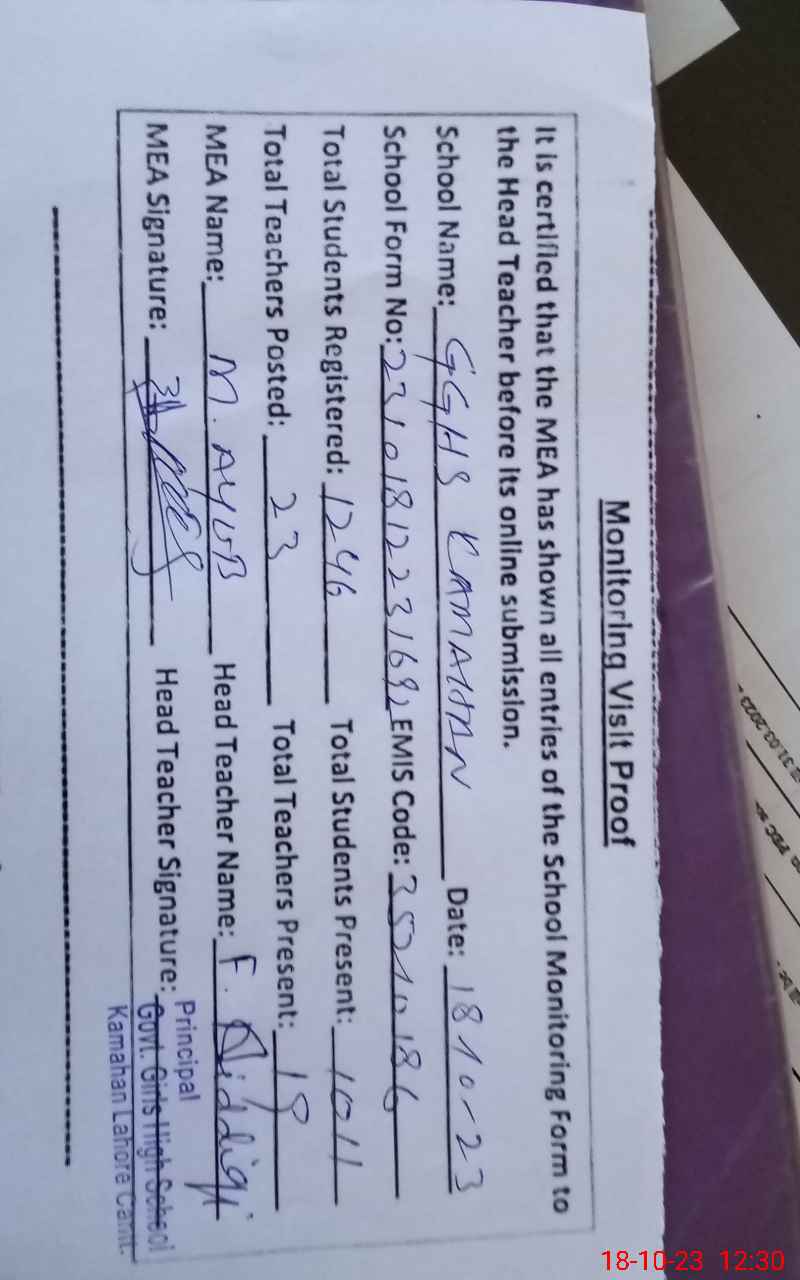 Monitoring Visit Proof
It is certified that the MEA has shown all entries of the School Monitoring Form to
the Head Teacher before its online submission.
School Name: GGHS KAMAHAN Date: 18 10-23
School Form No: EMIS Code: 35210186
Total Students Registered: 1246 Total Students Present: 1011
Total Teachers Posted: 23 Total Teachers Present: 19
MEA Name: M. AYUB Head Teacher Name: F. Siddiqi
MEA Signature: Head Teacher Signature:
Principal
Govt. Girls High School
Kamahan Lahore Cantt.
31.03.2023
18-10-23 12:30